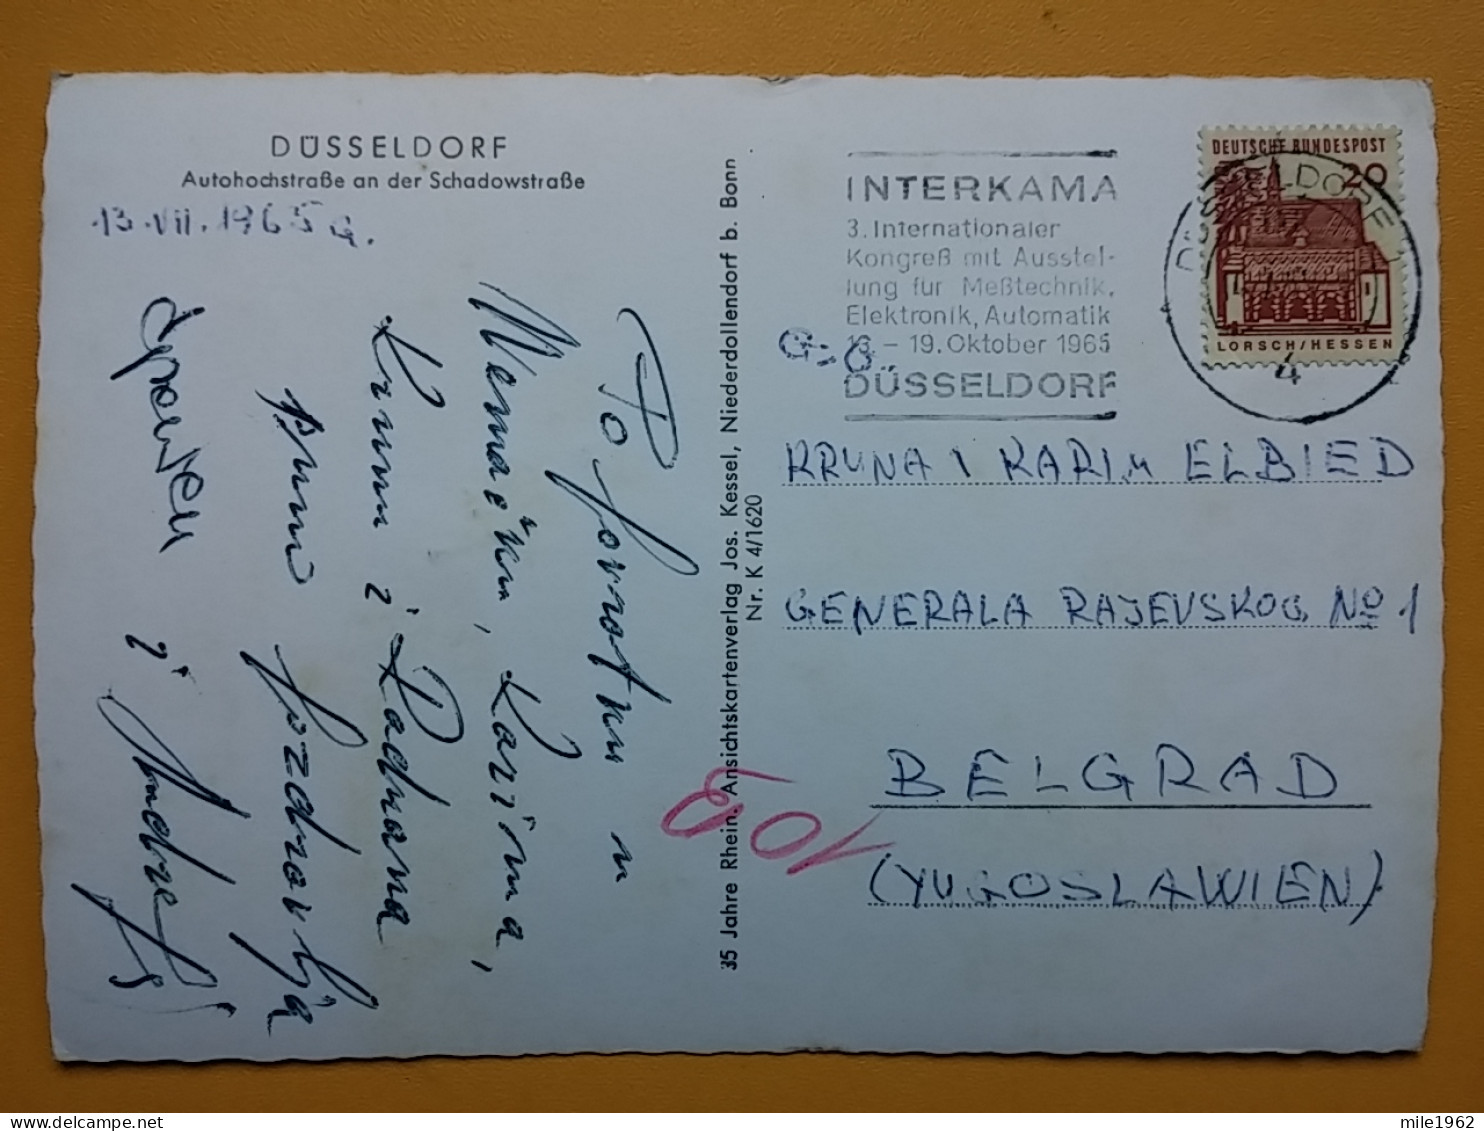 DÜSSELDORF
Autohochstraße an der Schadowstraße
13.VII.1965 g.
Po povratku u
Nemačku, Karima,
Krunu i Radvana
puno pozdravlja
i Andre
35 Jahre Rhein. Ansichtskartenverlag Jos. Kessel, Niederdollendorf b. Bonn
Nr. K 4/1620
INTERKAMA
3. Internationaler
Kongreß mit Ausstel-
lung für Meßtechnik,
Elektronik, Automatik
13. – 19. Oktober 1965
DÜSSELDORF
DEUTSCHE BUNDESPOST
20
LORSCH/HESSEN
DÜSSELDORF
4
G-G
KRUNA I KARIM ELBIED
GENERALA RAJEVSKOG No 1
BELGRAD
(YUGOSLAWIEN)
mile1962